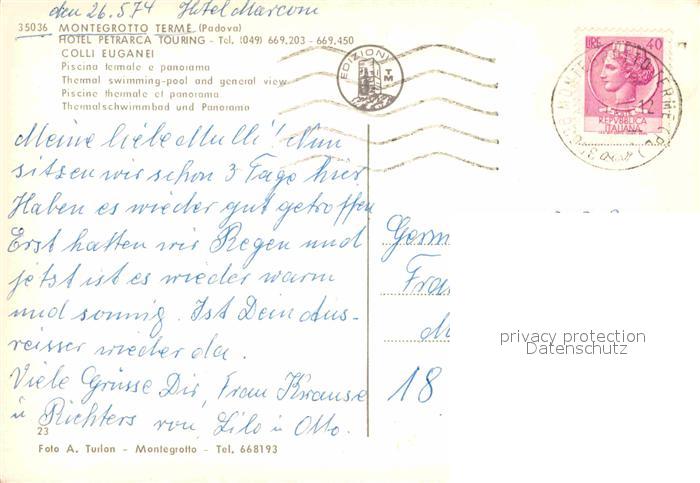 den 26.5.74 Hotel Marconi
35036 MONTEGROTTO TERME (Padova)
HOTEL PETRARCA TOURING - Tel. (049) 669.203 - 669.450
COLLI EUGANEI
Piscina termale e panorama
Thermal swimming-pool and general view
Piscine thermale et panorama
Thermalschwimmbad und Panorama
EDIZIONI
TM
LIRE 40
REPVBBLICA
ITALIANA
12
Meine liebe Mulli! Nun
sitzen wir schon 3 Tage hier
Haben es wieder gut getroffen
Erst hatten wir Regen und
jetzt ist es wieder warm
und sonnig. Ist Dein Aus-
reisser wieder da.
Viele Grüsse Dir, Frau Krause
u Richters von Lilo u Otto.
23
Foto A. Turlon - Montegrotto - Tel. 668193
Germ
Frau
18
privacy protection
Datenschutz